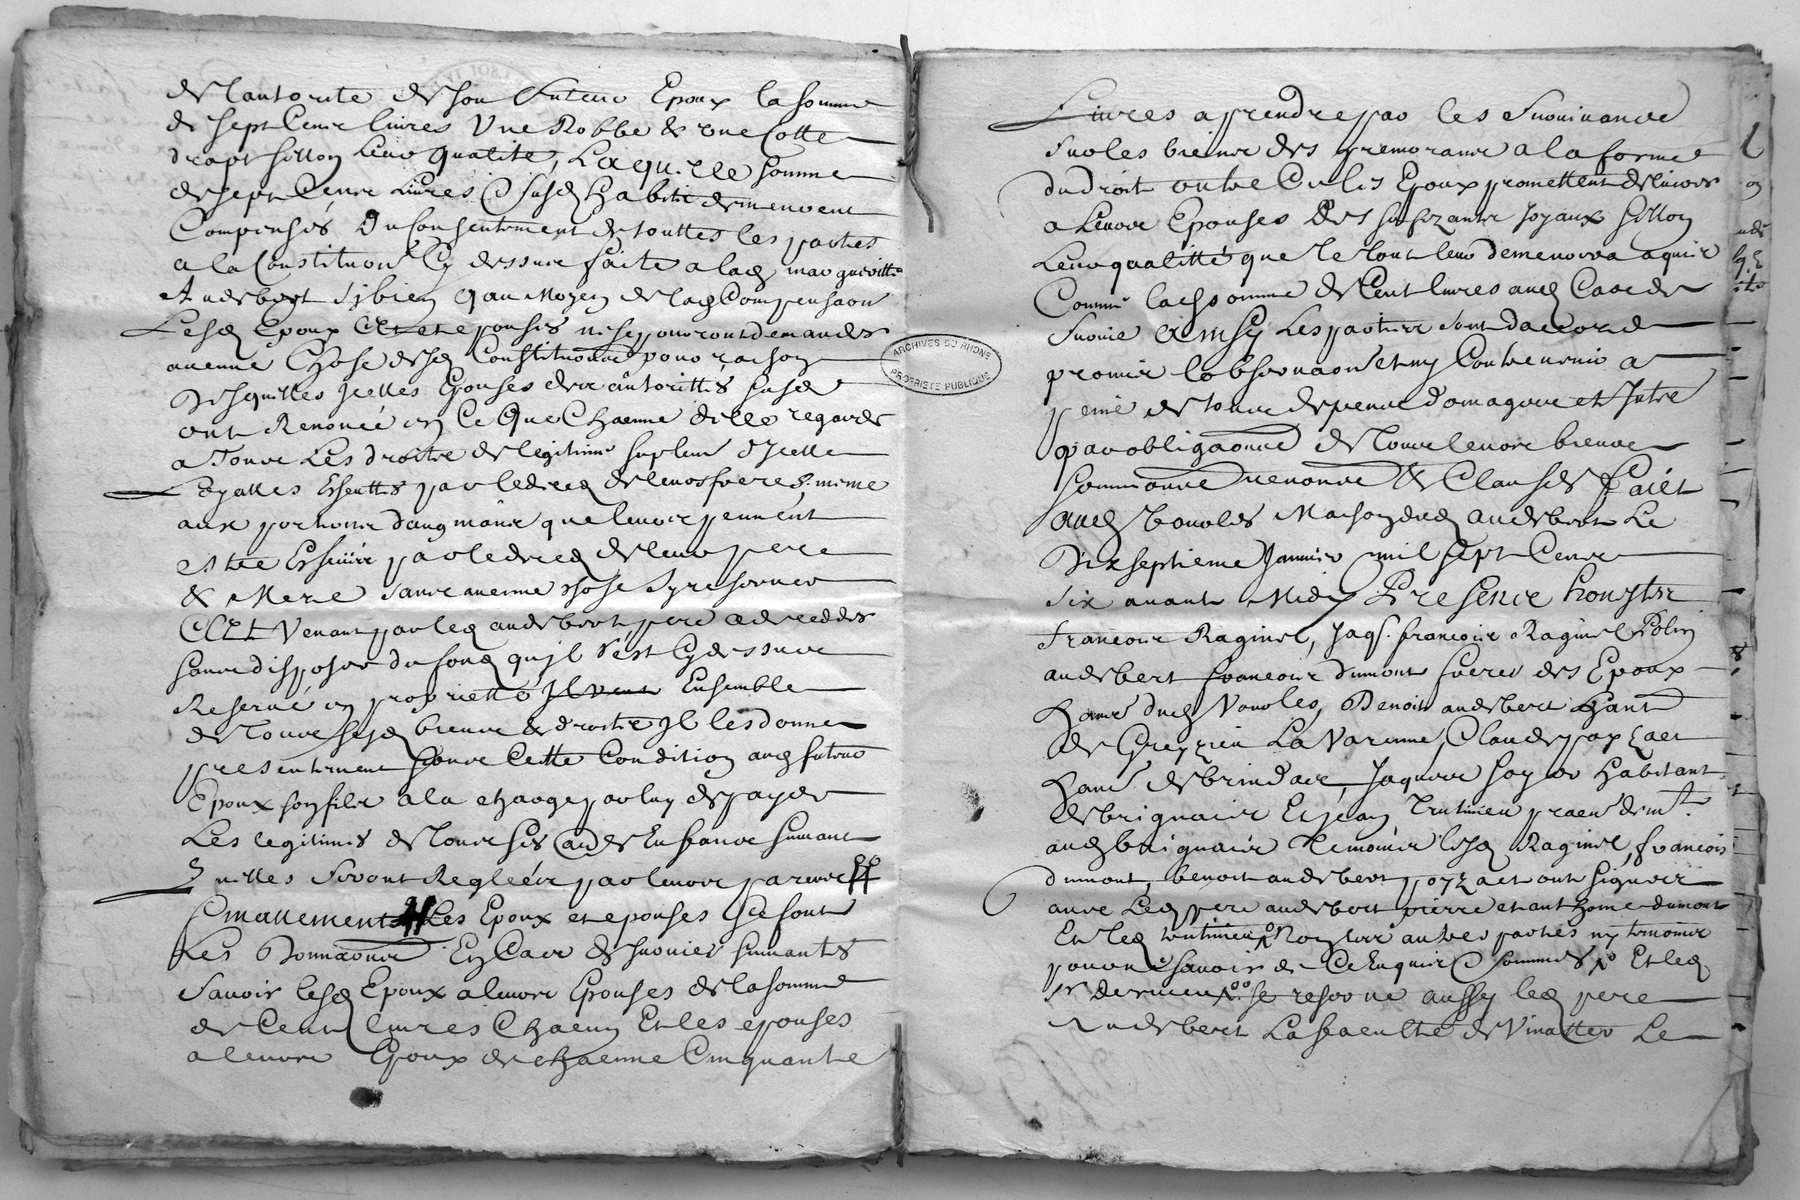 de lautorite de son futeur Epoux la somme
de sept Cent livres Vne Robbe & vne Cotte
drapt sellon leur qualite, Laquelle somme
de sept Cent Livres & susd habitz demeurent
Compensés Du Consentement de touttes les parties
a la Constitution Cy dessus faite a lad margueritte
Audebert sy bien qau Moyen de lad Compensaon
Lesd Epoux et epouses ne se pourront demander
aucune Chose desd Constitutions pour raison
Desquelles Icelles Epouses de autorittés susd
ont Renoncé en Ce Que Chacune delle regarde
a Tous Les droits de legitime suplem dIcelle
Egalles Escuttes par le deced de leurs freres mesme
aux portions daugmant que leur peuvent
estre Escüer par le deced de leur pere
& Mere sans aucune chose sy reserver
Et Venant par led audebert pere a deceder
sans disposer du fond qujl sest Cy dessus
Reservé en proprietté Jl veut Ensemble
de tous sesd biens & droits Jl les donne
presentement sous Cette Condition aud futeur
Epoux son filz a la charge par luy de payer
Les legitimes de tous ses autres Enfans suivant
quelles seront Regleés par leurs parens
Emattement Les Epoux et epouses se font
Les Donnaons En Cas de survies suivantes
Savoir lesd Epoux a leurs Epouses de la somme
de Cent livres Chacun Et les epouses
a leurs Epoux de chacune Cinquante
ARCHIVES DU RHONE
PROPRIETE PUBLIQUE
Livres a prendre par les survivans
sur les biens des premorans a la forme
du droit outre Ce les Epoux promettent delivrer
a Leurs Epouses Des suffizants joyaux sellon
Leur qualitté que le tout leur demeurera aquis
Comme lad somme de Cent livres aud Cas de
survie Ainsy Les parties sont daccord
promis lobservaon et ny Contrevenir a
peine de tous despens domages et Intre
par obligaons de tous leurs biens
soumissions renons & Clauses Faict
aud Vourles Maison dud audebert Le
Dix septieme Janvier mil sept Cens
six avant Midy Presence honestes
francois Raginel, Jaqs. francois Raginel
audebert francois dumont freres des Epoux
habit dud Vourles, Benoit audebert habitant
de Grezieu La Varenne, Claude payzact
habit de brindas, Jaques habitant
de brignais Et jean Trutinieu praen demt.
aud brignais Temoins lesd Raginel, francois
dumont, benoit audebert poyzact ont Signér
avec Led pere audebert pierre et anthoine dumont
Et led trutinieu Non les autres parties ny temoins
pour ne savoir de Ce Enquis & sommes Et led
se reserve aussy led pere
Audebert La faculté de